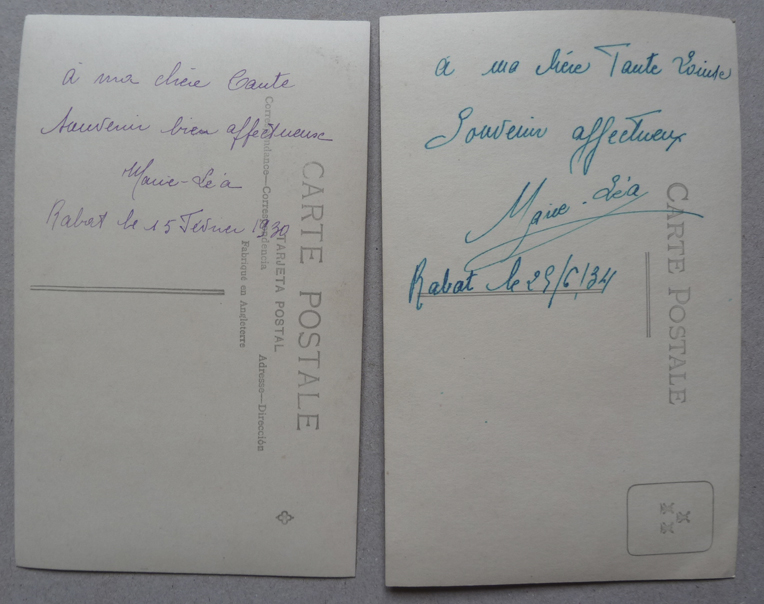 à ma chère Tante
Souvenir bien affectueux
Marie-Léa
Rabat le 15 Février 1930
CARTE POSTALE
TARJETA POSTAL
Correspondance—Correspondencia
Adresse—Dirección
Fabriqué en Angleterre
à ma chère Tante Louise
Souvenir affectueux
Marie-Léa
Rabat le 25/6/34
CARTE POSTALE